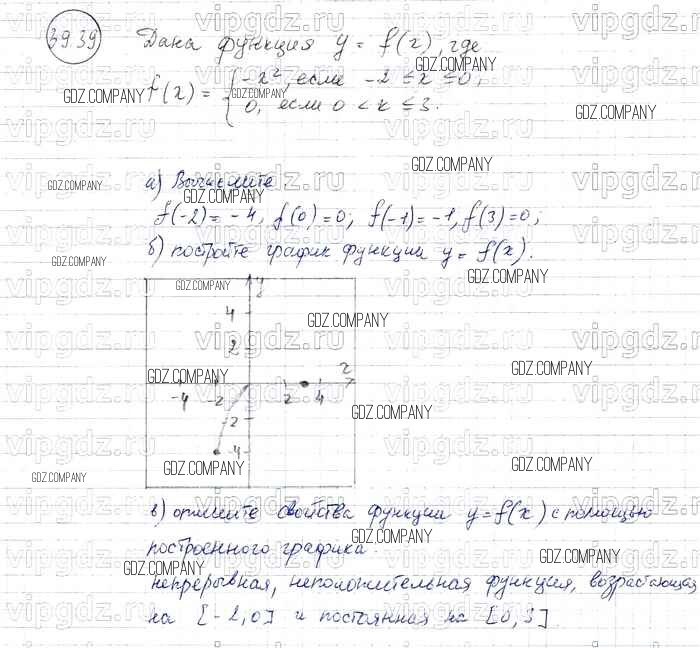 39.39 Дана функция y = f(x), где
f(x) = { -x², если -2 ≤ x ≤ 0,
0, если 0 < x ≤ 3.
а) Вычислите:
f(-2) = -4, f(0) = 0, f(-1) = -1, f(3) = 0;
б) постройте график функции y = f(x).
y
4
2
-4 -2 2 4
-2
-4
в) опишите свойства функции y = f(x) с помощью
построенного графика.
непрерывная, неположительная функция, возрастающая
на [-2,0] и постоянная на [0,3].
GDZ.COMPANY
vipgdz.ru